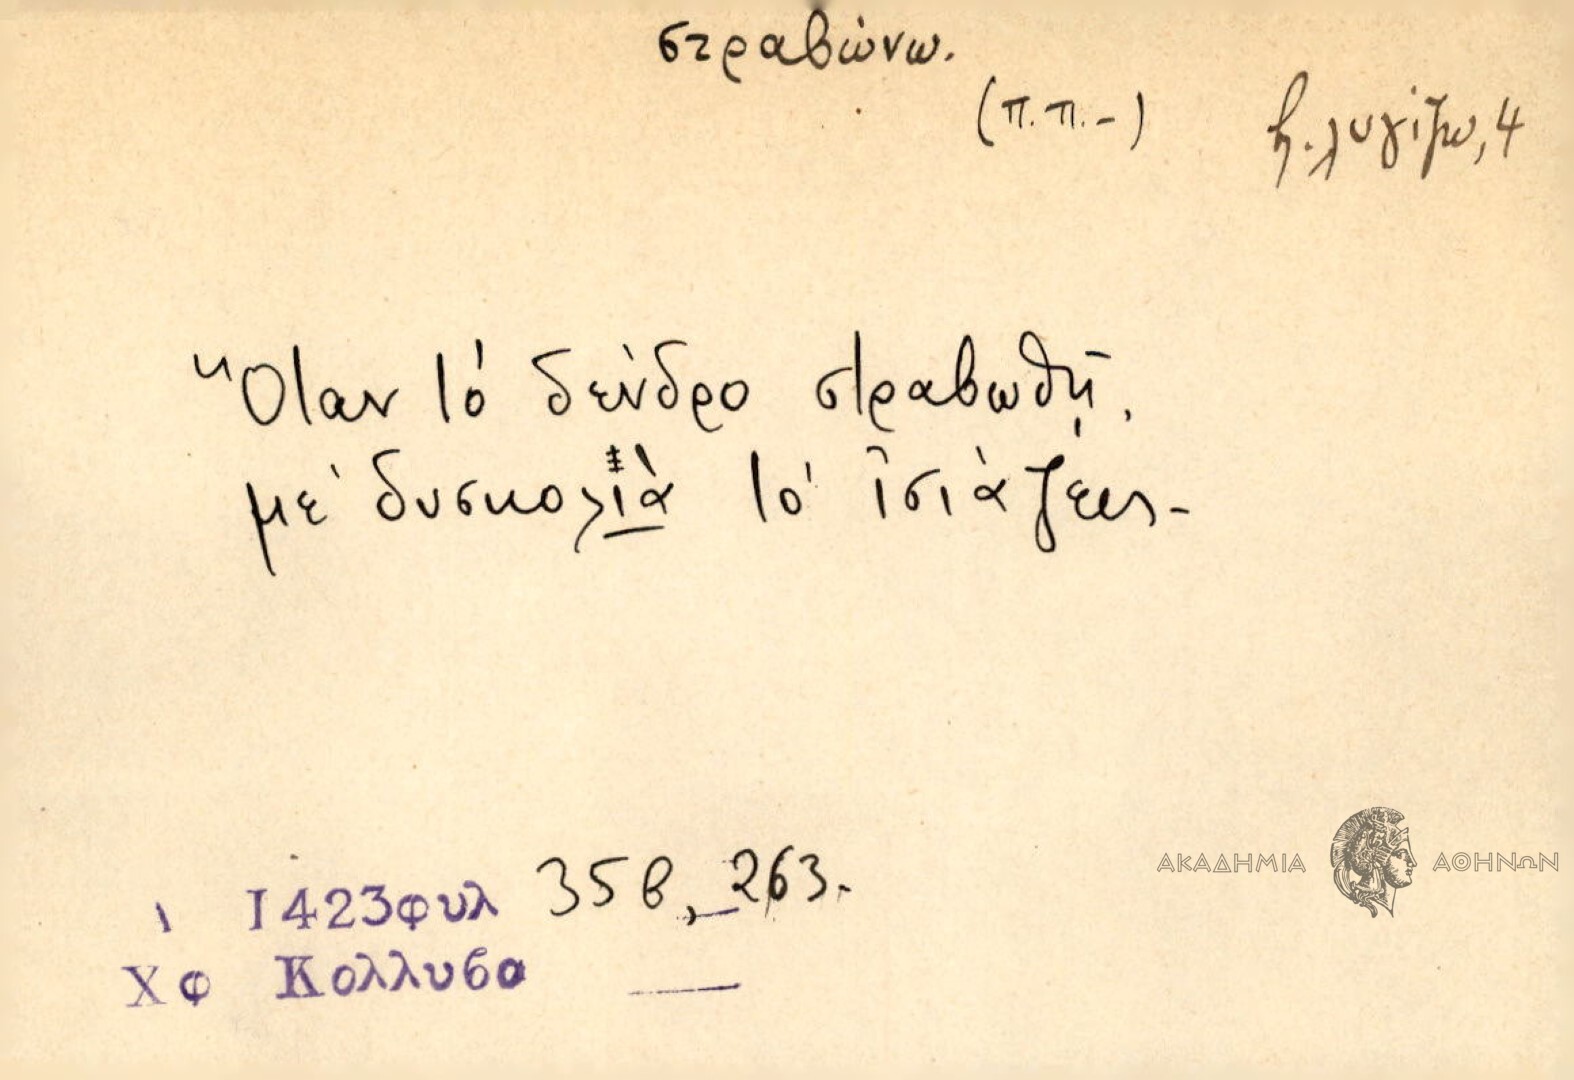 στραβώνω.
(π.π.-)
β. λυγίζω, 4
Ὅταν τό δένδρο στραβωθῇ,
μέ δυσκολιὰ τό ἰσιάζεις -
1423φυλ 35β, 263.
Χφ Κολλυβα
ΑΚΑΔΗΜΙΑ ΑΘΗΝΩΝ